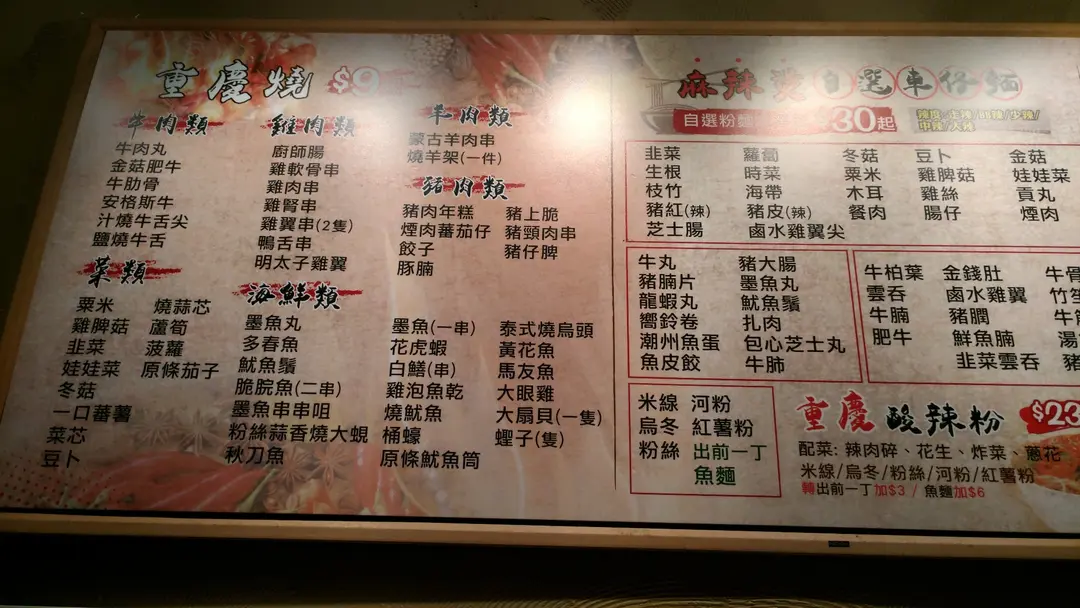 重慶燒 $9
牛肉類
牛肉丸
金菇肥牛
牛肋骨
安格斯牛
汁燒牛舌尖
鹽燒牛舌
雞肉類
廚師腸
雞軟骨串
雞肉串
雞腎串
雞翼串(2隻)
鴨舌串
明太子雞翼
羊肉類
蒙古羊肉串
燒羊架(一件)
豬肉類
豬肉年糕 豬上脆
煙肉蕃茄仔 豬頸肉串
餃子 豬仔脾
豚腩
菜類
粟米 燒蒜芯
雞脾菇 蘆筍
韭菜 菠蘿
娃娃菜 原條茄子
冬菇
一口蕃薯
菜芯
豆卜
海鮮類
墨魚丸 墨魚(一串) 泰式燒烏頭
多春魚 花虎蝦 黃花魚
魷魚鬚 白鱔(串) 馬友魚
脆脘魚(二串) 雞泡魚乾 大眼雞
墨魚串串咀 燒魷魚 大扇貝(一隻)
粉絲蒜香燒大蜆 桶蠔 蟶子(隻)
秋刀魚 原條魷魚筒
麻辣燙自選車仔麵
自選粉麵 $30起
中辣/大辣
韭菜 蘿蔔 冬菇 豆卜 金菇
生根 時菜 粟米 雞脾菇 娃娃菜
枝竹 海帶 木耳 雞絲 貢丸
豬紅(辣) 豬皮(辣) 餐肉 腸仔 煙肉
芝士腸 鹵水雞翼尖
牛丸 豬大腸
豬腩片 墨魚丸
龍蝦丸 魷魚鬚
嚮鈴卷 扎肉
潮州魚蛋 包心芝士丸
魚皮餃 牛肺
牛柏葉 金錢肚 牛骨
雲吞 鹵水雞翼 竹笙
牛腩 豬膶 牛
肥牛 鮮魚腩 湯
韭菜雲吞 豬
米線 河粉
烏冬 紅薯粉
粉絲 出前一丁
魚麵
重慶酸辣粉 $23
配菜: 辣肉碎、花生、炸菜、蔥花
米線/烏冬/粉絲/河粉/紅薯粉
轉出前一丁加$3 / 魚麵加$6